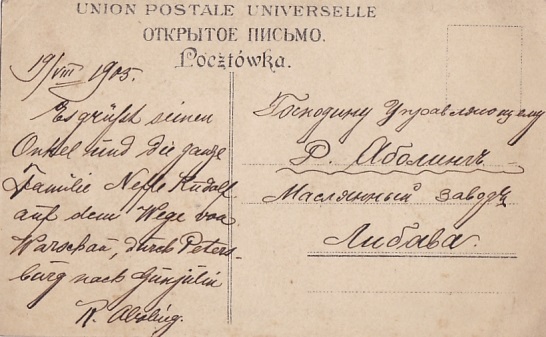 UNION POSTALE UNIVERSELLE
ОТКРЫТОЕ ПИСЬМО.
Pocztówka.
19/VIII 1905.
Es grüßt seinen
Onkel und die ganze
Familie Neffe Rudolf
auf dem Wege von
Warschau, durch Peters-
burg nach
R.
Господину Управляющему
Р. Аболинъ.
Маслянный заводъ
Либава.